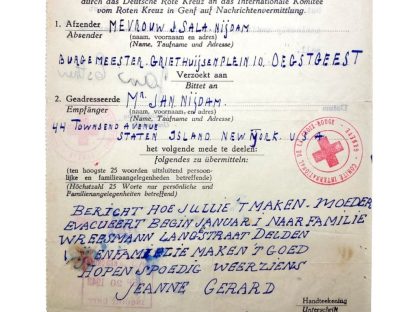 durch das Deutsche Rote Kreuz an das Internationale Komitee
vom Roten Kreuz in Genf auf Nachrichtenvermittlung.
1. Afzender MEVROUW J. SALA. NIJDAM
Absender (naam, voornaam en adres)
(Name, Taufname und Adresse)
BURGEMEESTER. GRIETHUIJSENPLEIN 10. OEGSTGEEST
Verzoekt aan
Bittet an
2. Geadresseerde MR. JAN. NIJDAM.
Empfänger (naam, voornaam en adres)
(Name, Taufname und Adresse)
44 TOWNSEND AVENUE
STATEN ISLAND. NEW YORK. U.S.A
het volgende mede te deelen:
folgendes zu übermitteln:
(ten hoogste 25 woorden uitsluitend persoon-
lijke en familieaangelegenheden betreffend)
(Höchstzahl 25 Worte nur persönliche und
Familienangelegenheiten betreffend)
COMITÉ INTERNATIONAL DE LA CROIX-ROUGE GENÈVE
BERICHT HOE JULLIE 'T MAKEN. MOEDER
EVACUEERT BEGIN JANUARI NAAR FAMILIE
WREESMANN LANGSTRAAT DELDEN
FAMILIE MAKEN 'T GOED
HOPEN SPOEDIG WEERZIENS
JEANNE GERARD
Handteekening
Unterschrift